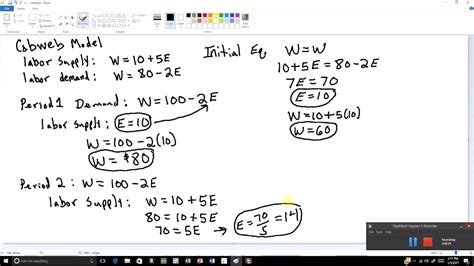 Cobweb Model
labor supply: W = 10 + 5E
labor demand: W = 80 - 2E
Initial Eq W = W
10 + 5E = 80 - 2E
7E = 70
E = 10
W = 10 + 5(10)
W = 60
Period 1 Demand: W = 100 - 2E
labor supply: E = 10
W = 100 - 2(10)
W = $80
Period 2: W = 100 - 2E
labor Supply: W = 10 + 5E
80 = 10 + 5E
70 = 5E → E = 70/5 = 14